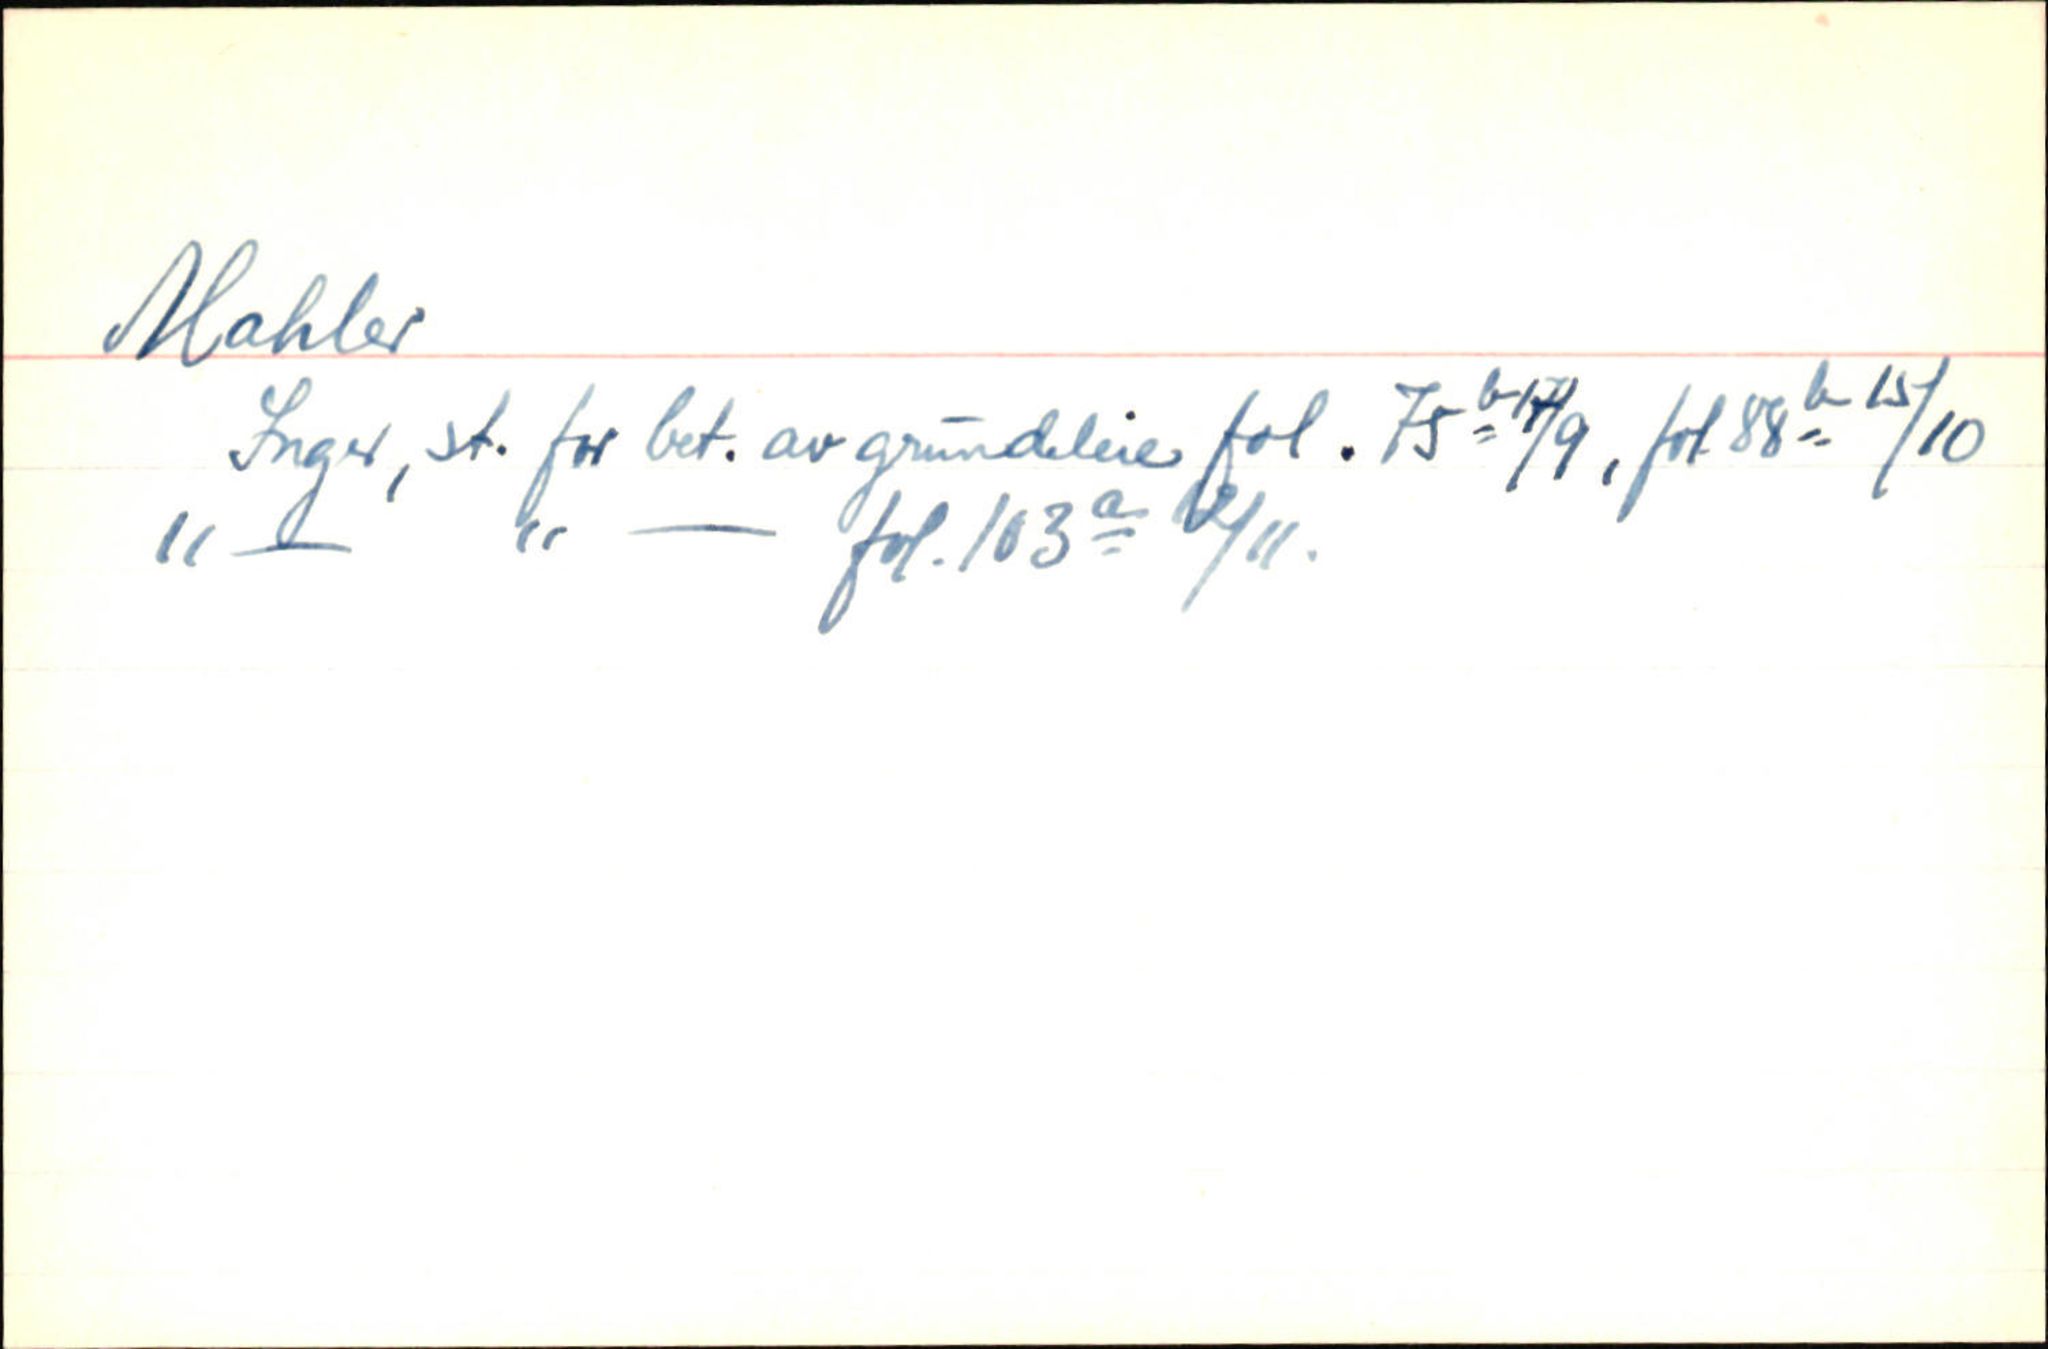 Mahler
Inger, st. for bet. av grundeleie fol. 75 b 17/9, fol 88 b 15/10
" — " — fol. 103 a 12/11.